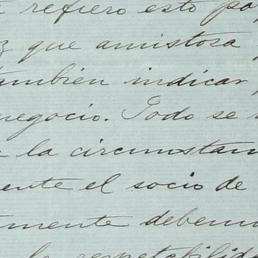 refiero esto po
que amistosa
tambien indicar
negocio. Todo se
la circunstan
ente el socio de
mente debemo
la respetabilida